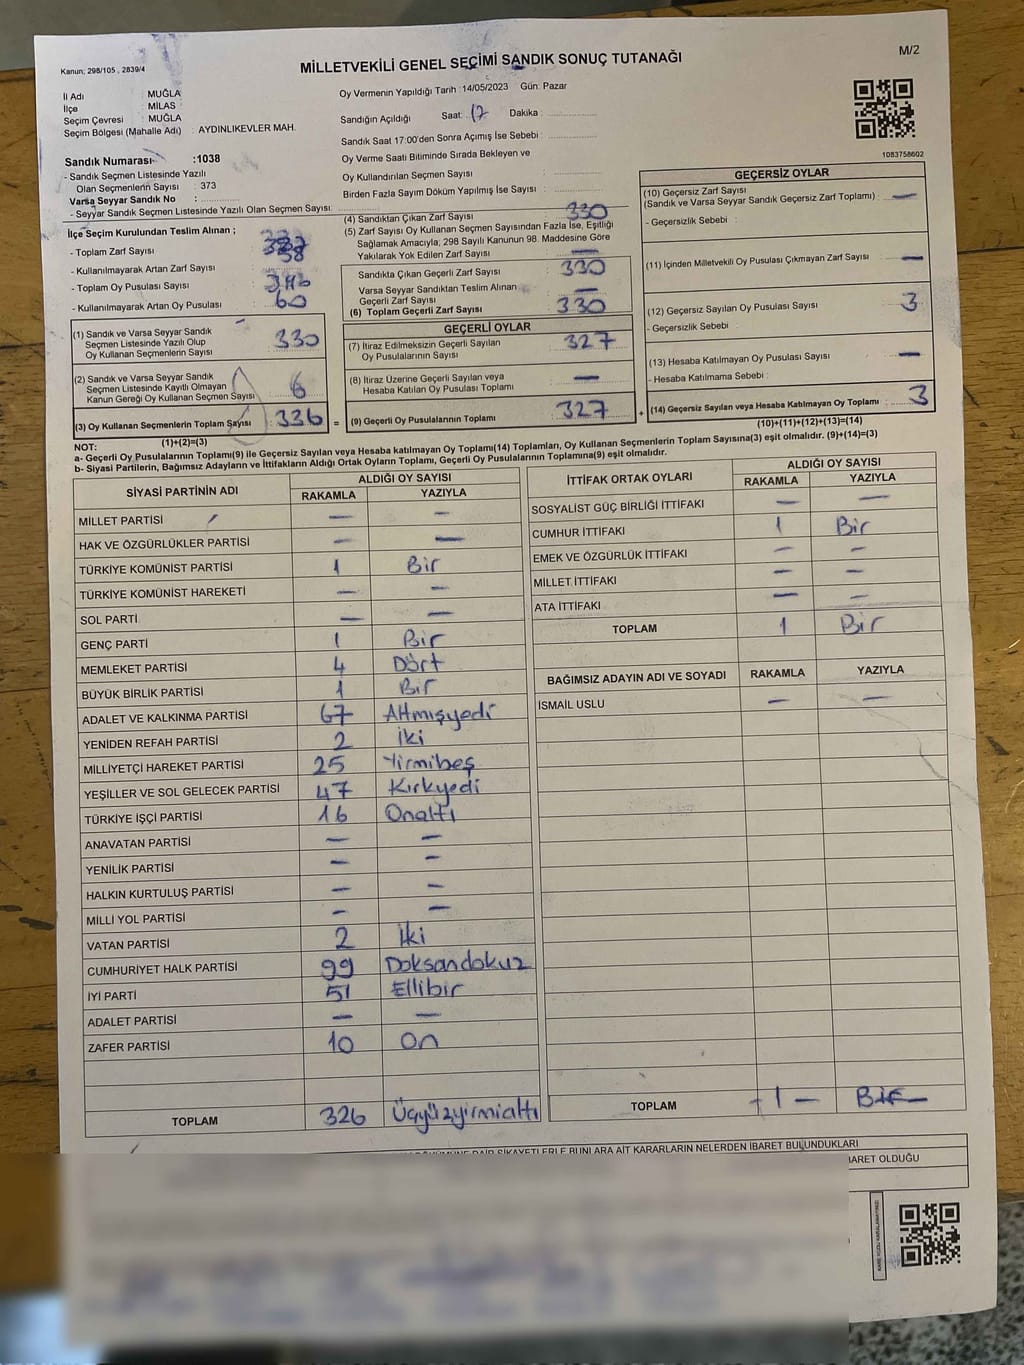 Kanun; 298/105 , 2839/4
MİLLETVEKİLİ GENEL SEÇİMİ SANDIK SONUÇ TUTANAĞI
M/2
İl Adı : MUĞLA
İlçe : MİLAS
Seçim Çevresi : MUĞLA
Seçim Bölgesi (Mahalle Adı) : AYDINLIKEVLER MAH.
Oy Vermenin Yapıldığı Tarih :14/05/2023 Gün: Pazar
Sandığın Açıldığı Saat: 17 Dakika :
Sandık Saat 17:00'den Sonra Açımış İse Sebebi :
Oy Verme Saati Bitiminde Sırada Bekleyen ve
Oy Kullandırılan Seçmen Sayısı :
Birden Fazla Sayım Döküm Yapılmış İse Sayısı :
1083758602
Sandık Numarası :1038
- Sandık Seçmen Listesinde Yazılı
Olan Seçmenlerin Sayısı : 373
Varsa Seyyar Sandık No :
- Seyyar Sandık Seçmen Listesinde Yazılı Olan Seçmen Sayısı:
İlçe Seçim Kurulundan Teslim Alınan ;
- Toplam Zarf Sayısı :
- Kullanılmayarak Artan Zarf Sayısı : 58
- Toplam Oy Pusulası Sayısı :
- Kullanılmayarak Artan Oy Pusulası : 60
(1) Sandık ve Varsa Seyyar Sandık
Seçmen Listesinde Yazılı Olup
Oy Kullanan Seçmenlerin Sayısı : 330
(2) Sandık ve Varsa Seyyar Sandık
Seçmen Listesinde Kayıtlı Olmayan
Kanun Gereği Oy Kullanan Seçmen Sayısı : 6
(3) Oy Kullanan Seçmenlerin Toplam Sayısı : 336 =
(1)+(2)=(3)
(4) Sandıktan Çıkan Zarf Sayısı : 330
(5) Zarf Sayısı Oy Kullanan Seçmen Sayısından Fazla İse, Eşitliği
Sağlamak Amacıyla, 298 Sayılı Kanunun 98. Maddesine Göre
Yakılarak Yok Edilen Zarf Sayısı : —
Sandıkta Çıkan Geçerli Zarf Sayısı : 330
Varsa Seyyar Sandıktan Teslim Alınan
Geçerli Zarf Sayısı : —
(6) Toplam Geçerli Zarf Sayısı : 330
GEÇERLİ OYLAR
(7) İtiraz Edilmeksizin Geçerli Sayılan
Oy Pusulalarının Sayısı : 327
(8) İtiraz Üzerine Geçerli Sayılan veya
Hesaba Katılan Oy Pusulası Toplamı : —
(9) Geçerli Oy Pusulalarının Toplamı : 327 +
GEÇERSİZ OYLAR
(10) Geçersiz Zarf Sayısı
(Sandık ve Varsa Seyyar Sandık Geçersiz Zarf Toplamı) : —
- Geçersizlik Sebebi :
(11) İçinden Milletvekili Oy Pusulası Çıkmayan Zarf Sayısı : —
(12) Geçersiz Sayılan Oy Pusulası Sayısı : 3
- Geçersizlik Sebebi :
(13) Hesaba Katılmayan Oy Pusulası Sayısı : —
- Hesaba Katılmama Sebebi :
(14) Geçersiz Sayılan veya Hesaba Katılmayan Oy Toplamı : 3
(10)+(11)+(12)+(13)=(14)
NOT:
a- Geçerli Oy Pusulalarının Toplamı(9) ile Geçersiz Sayılan veya Hesaba katılmayan Oy Toplamı(14) Toplamları, Oy Kullanan Seçmenlerin Toplam Sayısına(3) eşit olmalıdır. (9)+(14)=(3)
b- Siyasi Partilerin, Bağımsız Adayların ve İttifakların Aldığı Ortak Oyların Toplamı, Geçerli Oy Pusulalarının Toplamına(9) eşit olmalıdır.
SİYASİ PARTİNİN ADI ALDIĞI OY SAYISI
RAKAMLA YAZIYLA
MİLLET PARTİSİ — —
HAK VE ÖZGÜRLÜKLER PARTİSİ — —
TÜRKİYE KOMÜNİST PARTİSİ 1 Bir
TÜRKİYE KOMÜNİST HAREKETİ — —
SOL PARTİ — —
GENÇ PARTİ 1 Bir
MEMLEKET PARTİSİ 4 Dört
BÜYÜK BİRLİK PARTİSİ 1 Bir
ADALET VE KALKINMA PARTİSİ 67 Altmışyedi
YENİDEN REFAH PARTİSİ 2 İki
MİLLİYETÇİ HAREKET PARTİSİ 25 Yirmibeş
YEŞİLLER VE SOL GELECEK PARTİSİ 47 Kırkyedi
TÜRKİYE İŞÇİ PARTİSİ 16 Onaltı
ANAVATAN PARTİSİ — —
YENİLİK PARTİSİ — —
HALKIN KURTULUŞ PARTİSİ — —
MİLLİ YOL PARTİSİ — —
VATAN PARTİSİ 2 İki
CUMHURİYET HALK PARTİSİ 99 Doksandokuz
İYİ PARTİ 51 Ellibir
ADALET PARTİSİ — —
ZAFER PARTİSİ 10 On
TOPLAM 326 Üçyüzyirmialtı
İTTİFAK ORTAK OYLARI ALDIĞI OY SAYISI
RAKAMLA YAZIYLA
SOSYALİST GÜÇ BİRLİĞİ İTTİFAKI — —
CUMHUR İTTİFAKI 1 Bir
EMEK VE ÖZGÜRLÜK İTTİFAKI — —
MİLLET İTTİFAKI — —
ATA İTTİFAKI — —
TOPLAM 1 Bir
BAĞIMSIZ ADAYIN ADI VE SOYADI RAKAMLA YAZIYLA
İSMAİL USLU — —
TOPLAM — 1 — Bir
ŞİKAYETLERLE BUNLARA AİT KARARLARIN NELERDEN İBARET BULUNDUKLARI
İBARET OLDUĞU